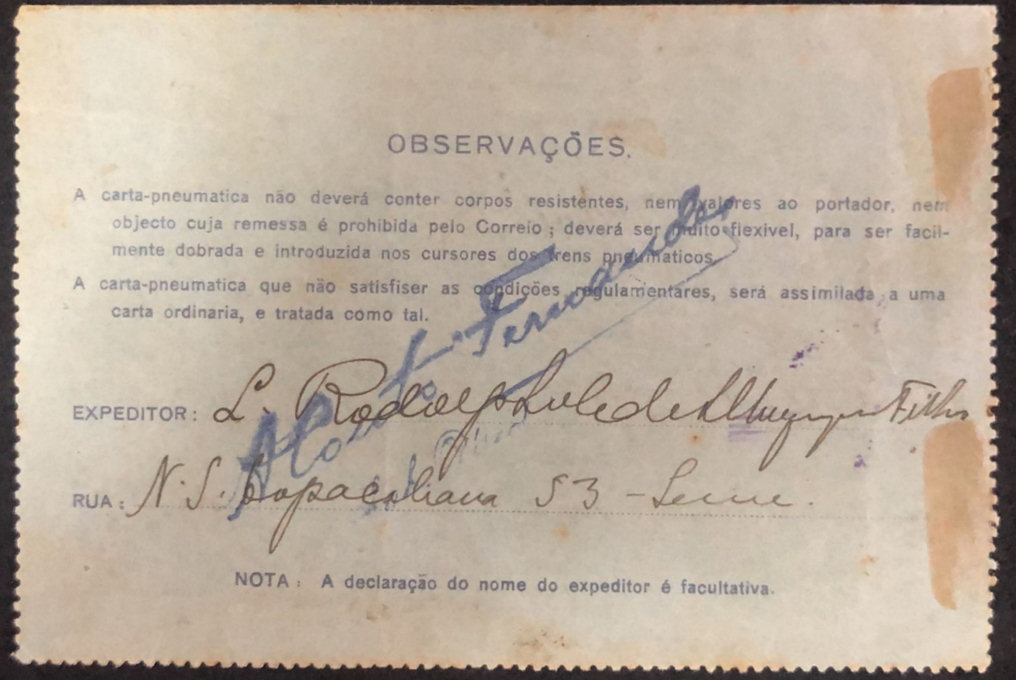 OBSERVAÇÕES.
A carta-pneumatica não deverá conter corpos resistentes, nem valores ao portador, nem
objecto cuja remessa é prohibida pelo Correio ; deverá ser muito flexivel, para ser facil-
mente dobrada e introduzida nos cursores dos trens pneumaticos.
A carta-pneumatica que não satisfiser as condições regulamentares, será assimilada a uma
carta ordinaria, e tratada como tal.
EXPEDITOR: L. Rodolfo de Filho
RUA: N. S. Copacabana 53 - Leme.
NOTA: A declaração do nome do expeditor é facultativa.